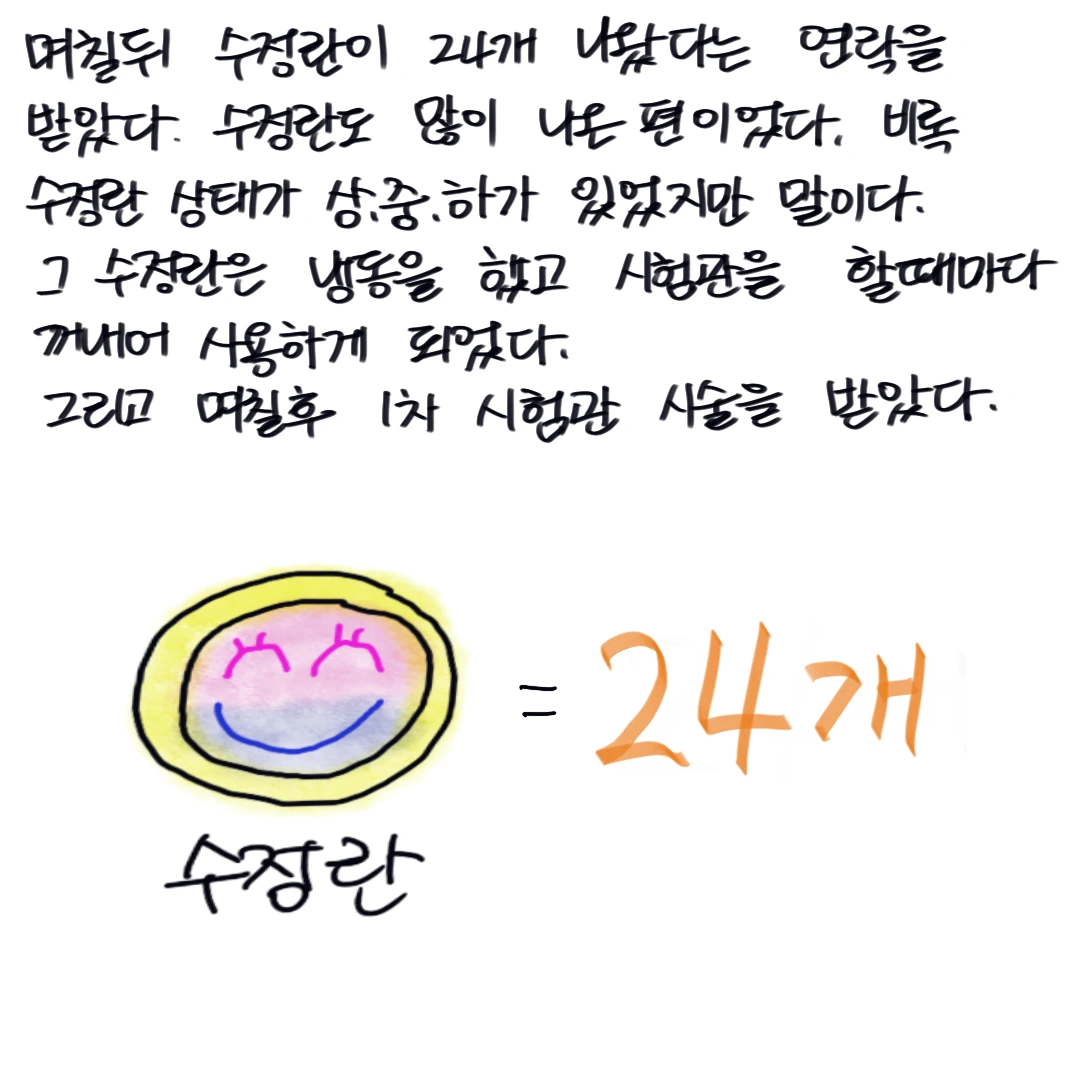 며칠뒤 수정란이 24개 나왔다는 연락을
받았다. 수정란도 많이 나온 편이었다. 비록
수정란 상태가 상.중.하가 있었지만 말이다.
그 수정란은 냉동을 했고 시험관을 할때마다
꺼내어 사용하게 되었다.
그리고 며칠후 1차 시험관 시술을 받았다.
= 24개
수정란